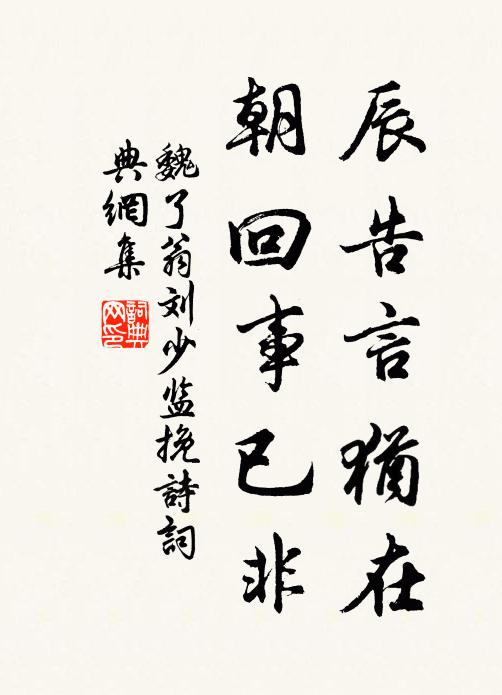 辰告言猶在
朝回事已非
魏了翁刘少监挽詩詞
典網集
詞典網印